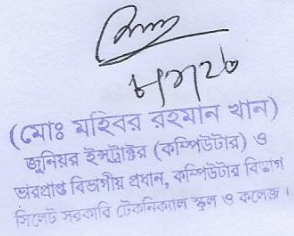 ৮/৭/২৬
(মোঃ মহিবর রহমান খান)
জুনিয়র ইন্সট্রাক্টর (কম্পিউটার) ও
ভারপ্রাপ্ত বিভাগীয় প্রধান, কম্পিউটার বিভাগ
সিলেট সরকারি টেকনিক্যাল স্কুল ও কলেজ।